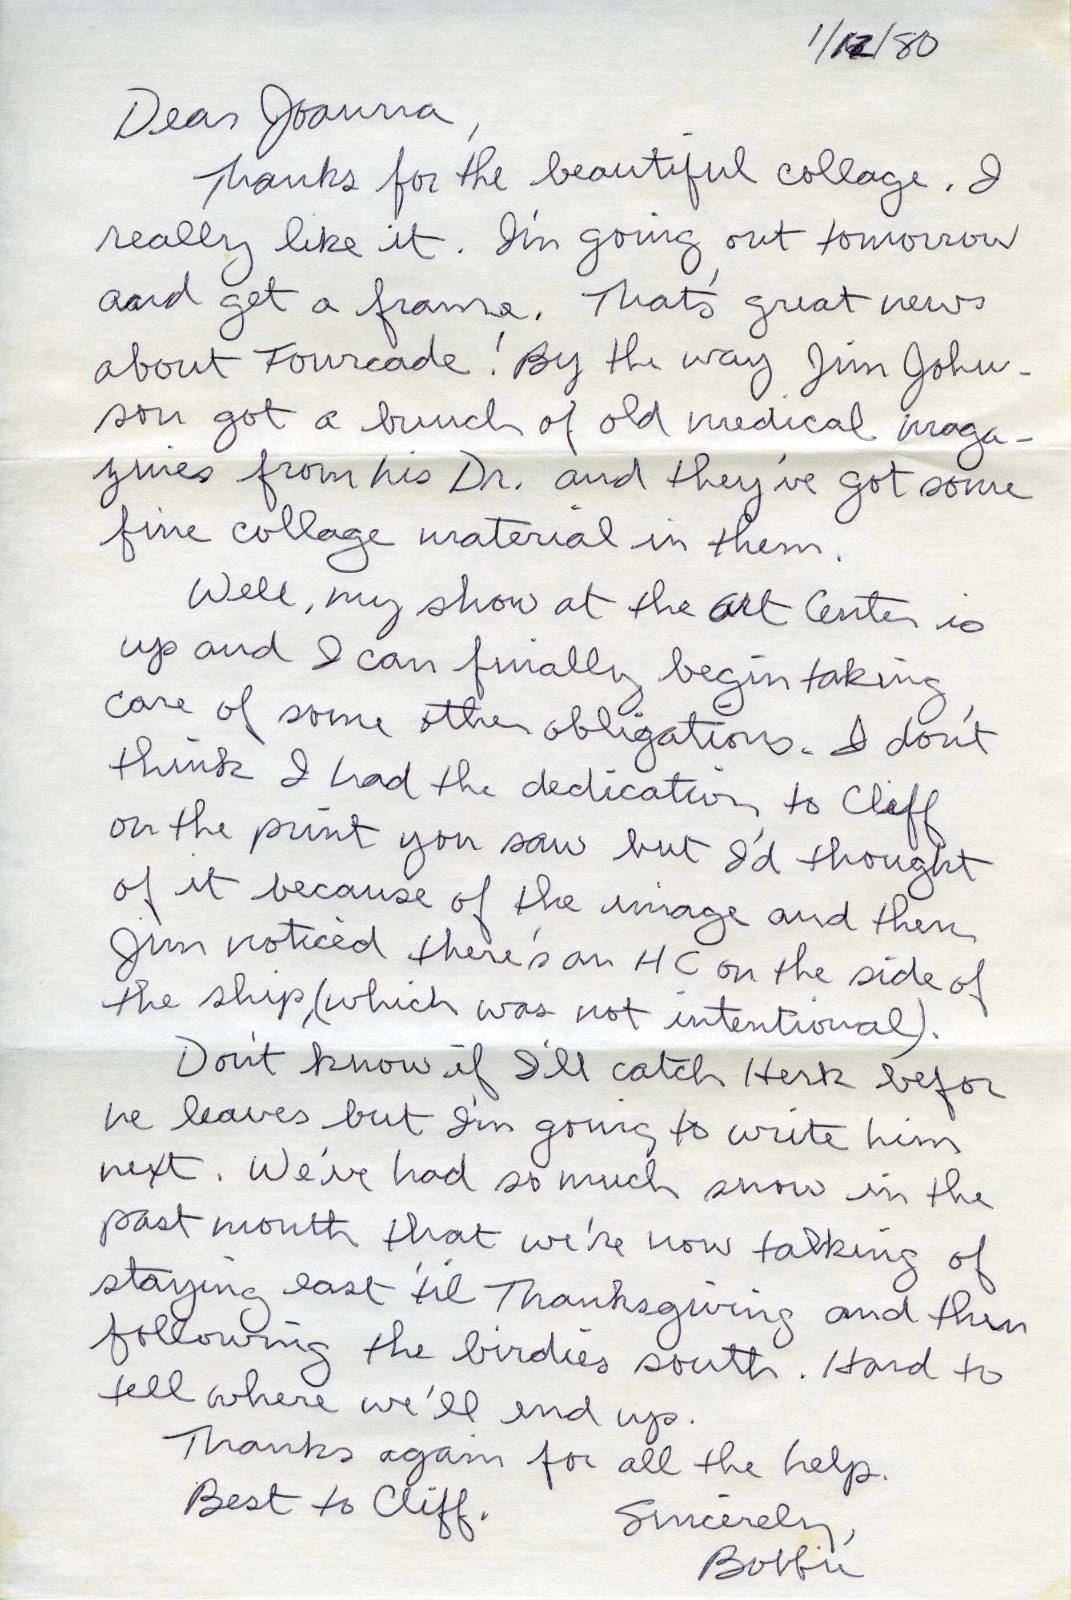 1/12/80
Dear Joanna,
Thanks for the beautiful collage. I
really like it. I'm going out tomorrow
and get a frame. That's great news
about Fourcade! By the way Jim John-
son got a bunch of old medical maga-
zines from his Dr. and they've got some
fine collage material in them.
Well, my show at the Art Center is
up and I can finally begin taking
care of some other obligations. I don't
think I had the dedication to Cliff
on the print you saw but I'd thought
of it because of the image and then
Jim noticed there's an HC on the side of
the ship, (which was not intentional).
Don't know if I'll catch Herk befor
he leaves but I'm going to write him
next. We've had so much snow in the
past month that we're now talking of
staying east 'til Thanksgiving and then
following the birdies south. Hard to
tell where we'll end up.
Thanks again for all the help.
Best to Cliff.
Sincerely,
Bobbie